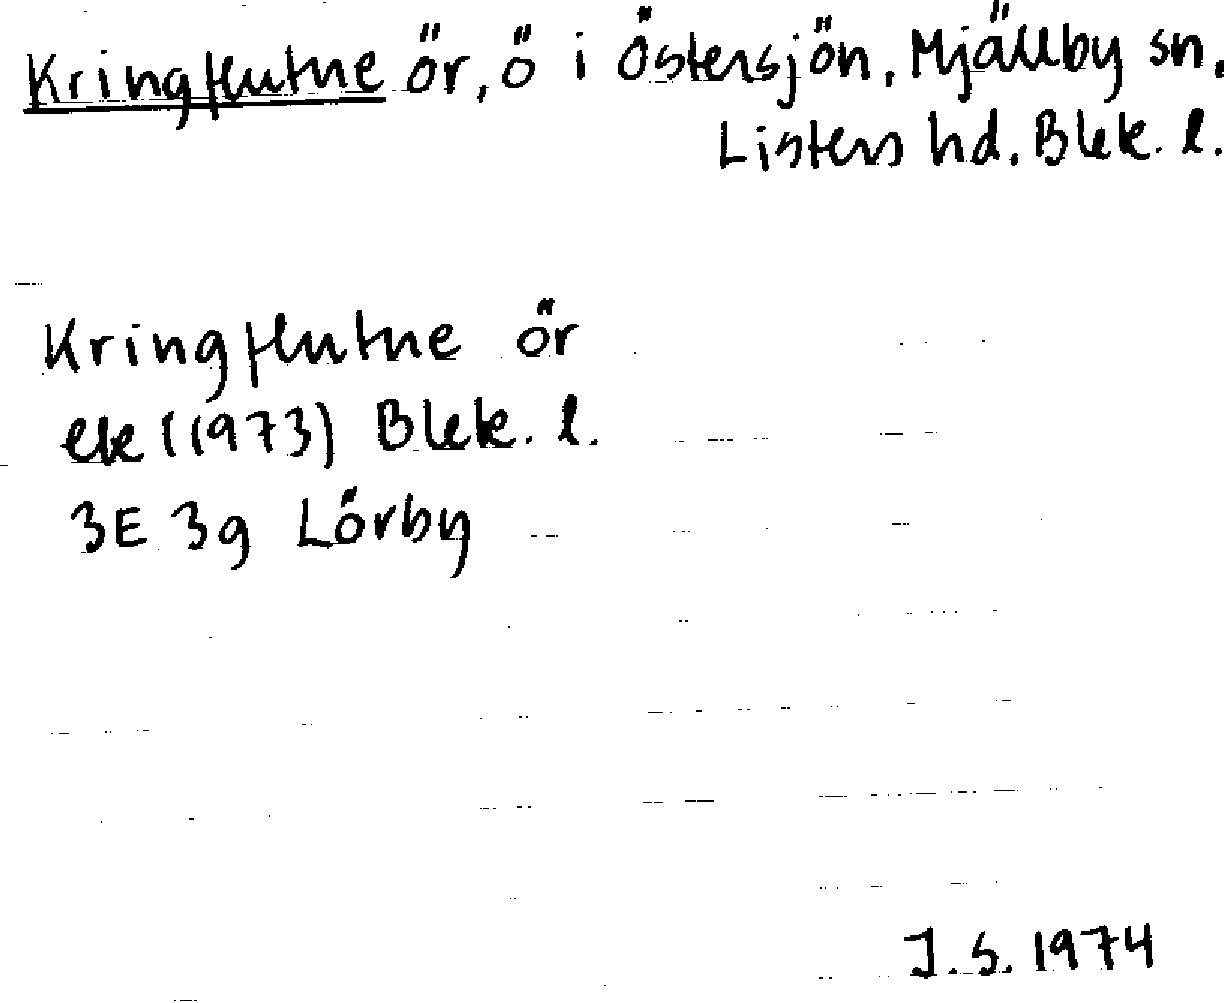 Kringflutne ör, ö i Östersjön, Mjällby sn,
Listers hd. Blek. l.
Kringflutne ör
ek (1973) Blek. l.
3E 3g Lörby
J.S. 1974